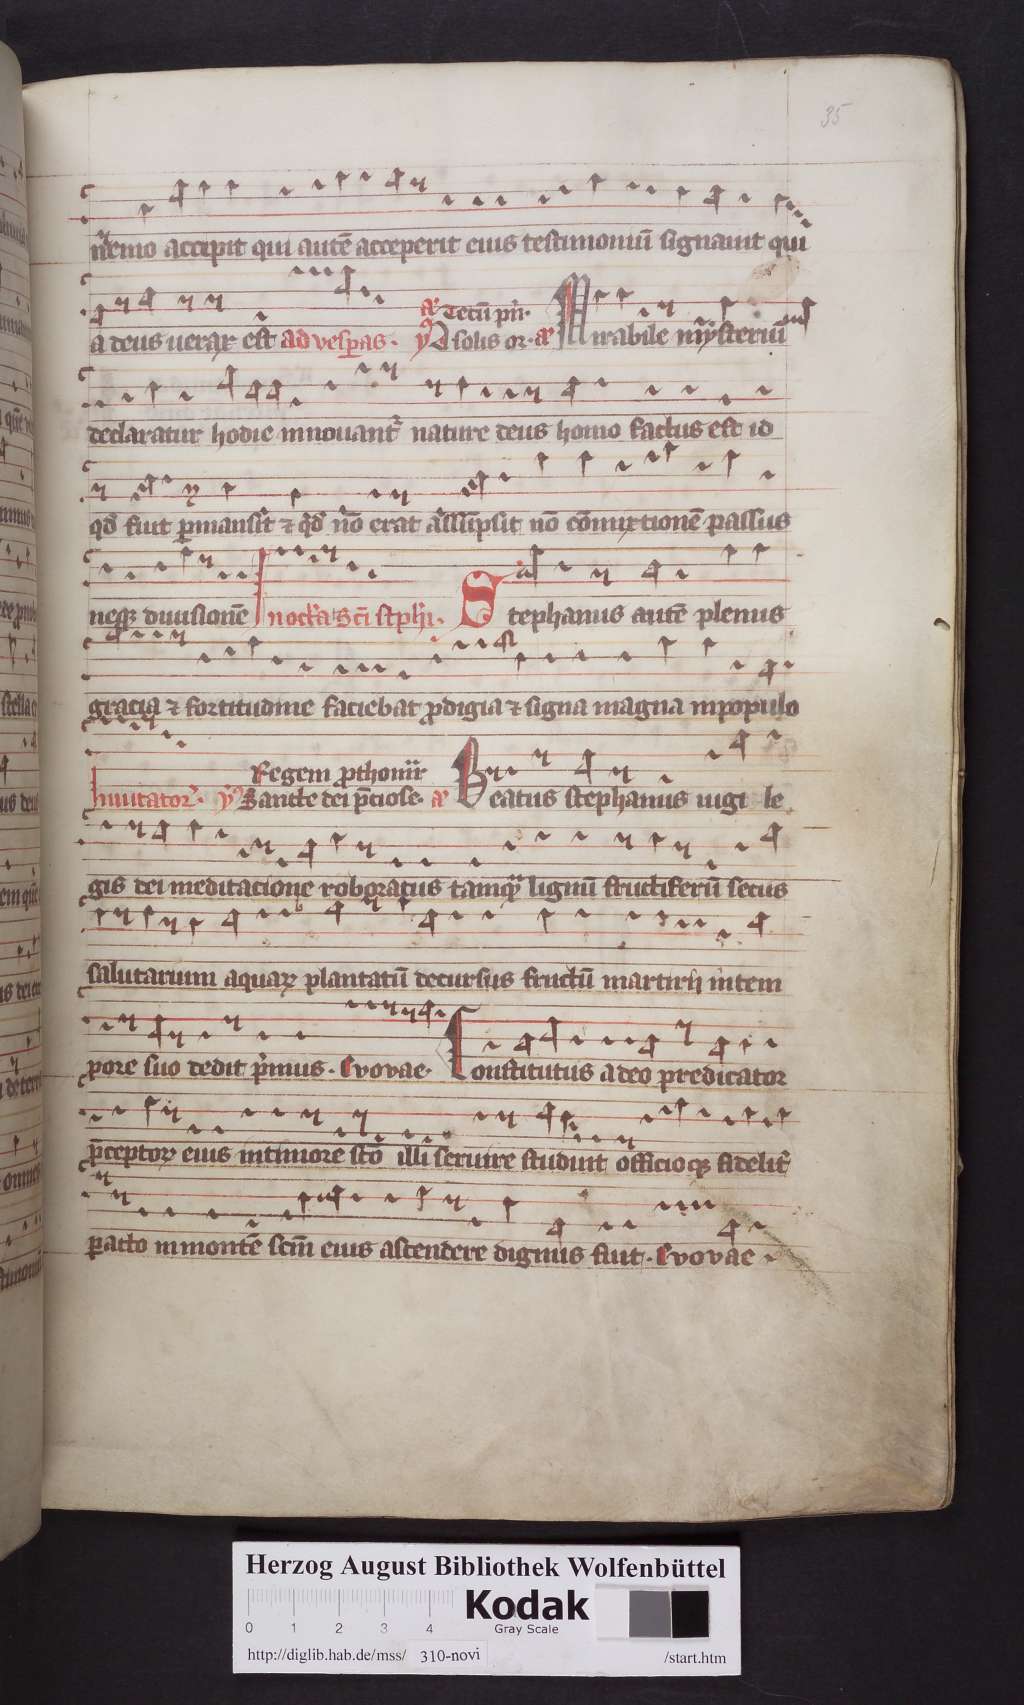 35
nemo accepit qui autē acceperit eius testimoniū signauit qui
a deus uerax est ad vesperas. aͬ Tecū prī.
℣ A solis or. aͬ Mirabile mysteriū
declaratur hodie innouantᷣ nature deus homo factus est id
qd̄ fuit ꝑmansit ⁊ qd̄ nō erat assūpsit nō cōmixtionē passus
neqꝫ diuisionē In octͣa sc̄i stephī. Stephanus autē plenus
gracia ⁊ fortitudine faciebat ꝓdigia ⁊ signa magna in populo
Regem ꝓthom̄r
Inuitatorͥ. ℣ Sancte dei p̄ciose. aͬ Beatus stephanus iugi le
gis dei meditacione roboratus tamqͣ lignū fructiferū secus
salutarium aquaꝝ plantatū decursus fructū martirij in tem
pore suo dedit pͥmus. Evovae. Constitutus a deo predicator
p̄ceptoꝝ eius intimore sc̄o illi seruire studuit officioqꝫ fidelitᷣ
ꝑacto in montē sc̄m eius ascendere dignus fuit. Evovae
Herzog August Bibliothek Wolfenbüttel
0 1 2 3 4 Kodak
Gray Scale
http://diglib.hab.de/mss/ 310-novi /start.htm